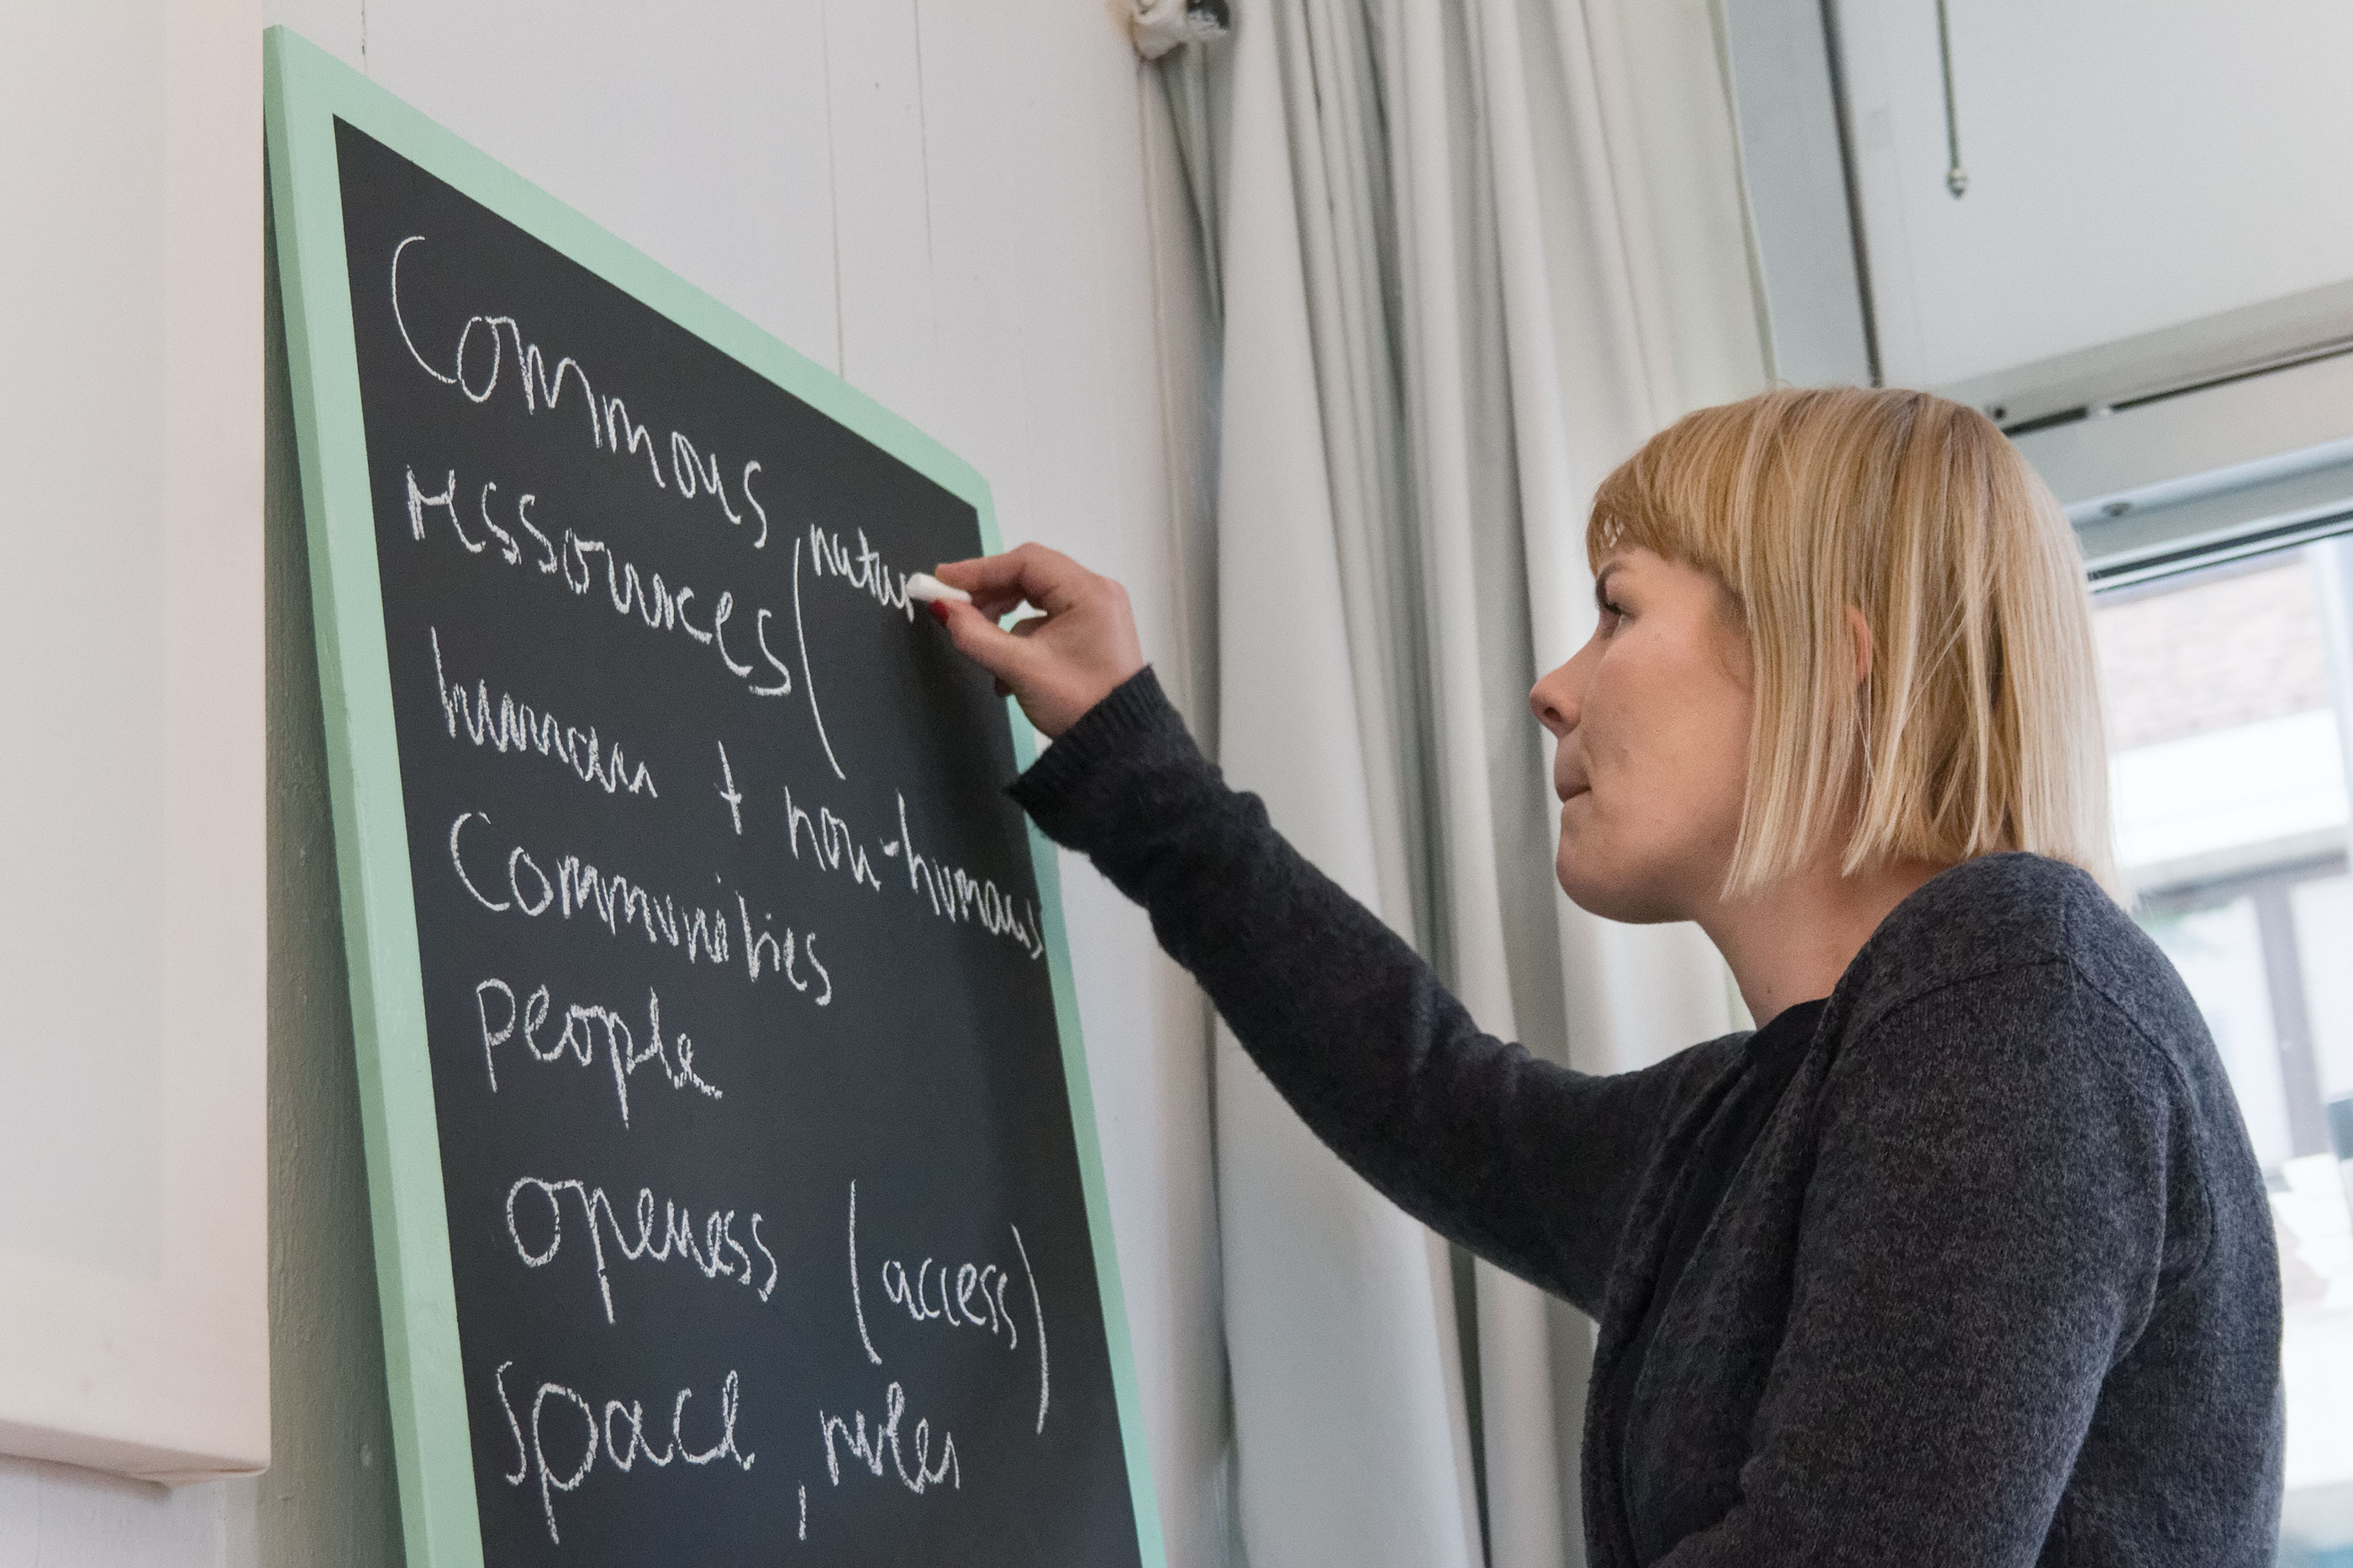 Commons
ressources (natur
human + non-humans
Communities
people
openess (access)
space, rules